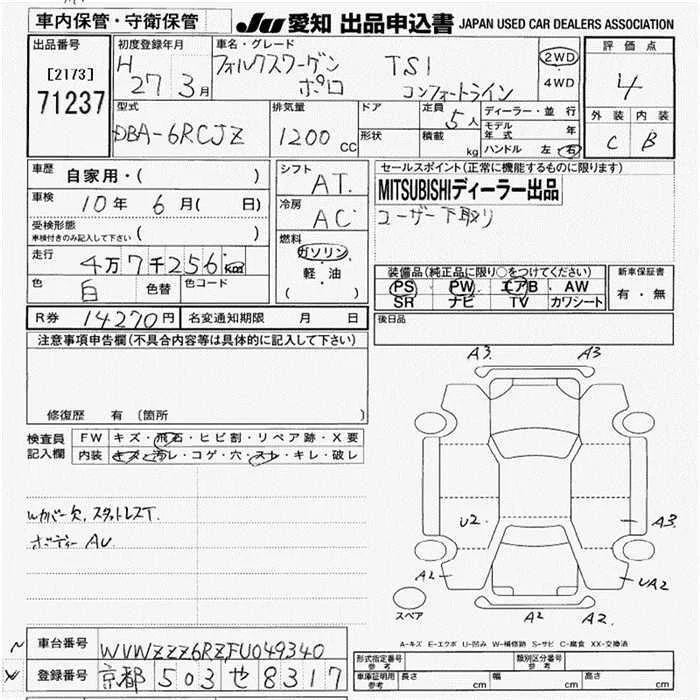 車内保管・守衛保管
JU 愛知 出品申込書 JAPAN USED CAR DEALERS ASSOCIATION
出品番号
[2173]
71237
初度登録年月
H 27 3月
車名・グレード
フォルクスワーゲン TSI
ポロ コンフォートライン
2WD
4WD
評価点
4
外装 内装
C B
型式
DBA-6RCJZ
排気量
1200 CC
ドア
形状
定員 5人
積載 kg
ディーラー・並行
モデル年式 年
ハンドル 左・右
車歴 自家用・( )
車検 10年 6月( 日)
受検形態
車検付きのみ記入して下さい ( )
走行 4万7千256 Km
色 白 色替 色コード
シフト
AT.
冷房
AC
燃料
ガソリン
軽・油
( )
セールスポイント(正常に機能するものに限ります)
MITSUBISHIディーラー出品
ユーザー下取り
装備品(純正品に限り○をつけてください)
PS PW エアB AW
SR ナビ TV カワシート
新車保証書
有・無
R券 14270円 名変通知期限 月 日
後日品
注意事項申告欄(不具合内容等は具体的に記入して下さい)
修復歴 有 〔箇所 〕
検査員記入欄
FW キズ・飛石・ヒビ割・リペア跡・X要
内装 キズ・汚レ・コゲ・穴・スレ・キレ・破レ
Wカバー欠. スタットレスT.
ボディー AU
A3. A3
U2. A3.
A2 UA2
A2 A2.
スペア
A-キズ E-エクボ U-凹み W-補修跡 S-サビ C-腐食 XX-交換済
車台番号 WVWZZZ6RZFU049340
登録番号 京都 503 せ 8317
形式指定番号 参考
類別区分番号 参考
車庫証明用 参考 長さ cm 幅 cm 高さ cm